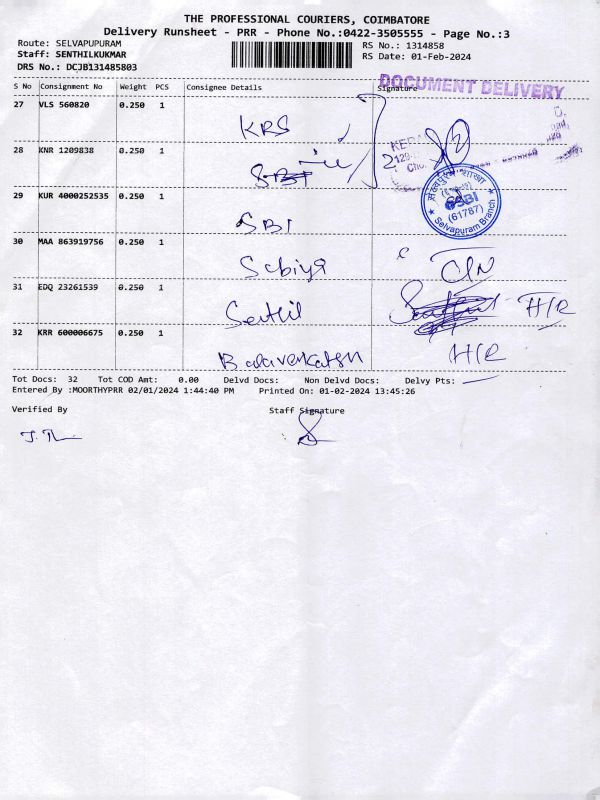 THE PROFESSIONAL COURIERS, COIMBATORE
Delivery Runsheet - PRR - Phone No.:0422-3505555 - Page No.:3
Route: SELVAPUPURAM
Staff: SENTHILKUKMAR
DRS No.: DCJB131485803
RS No.: 1314858
RS Date: 01-Feb-2024
DOCUMENT DELIVERY
S No Consignment No Weight PCS Consignee Details Signature
27 VLS 560820 0.250 1 KRS
28 KNR 1209838 0.250 1
29 KUR 4000252535 0.250 1 SBI
SBI
(61787)
Selvapuram Branch
30 MAA 863919756 0.250 1 Sabiya
31 EDQ 23261539 0.250 1 Senthil H/R
32 KRR 600006675 0.250 1 H/R
Tot Docs: 32 Tot COD Amt: 0.00 Delvd Docs: Non Delvd Docs: Delvy Pts:
Entered By :MOORTHYPRR 02/01/2024 1:44:40 PM Printed On: 01-02-2024 13:45:26
Verified By Staff Signature